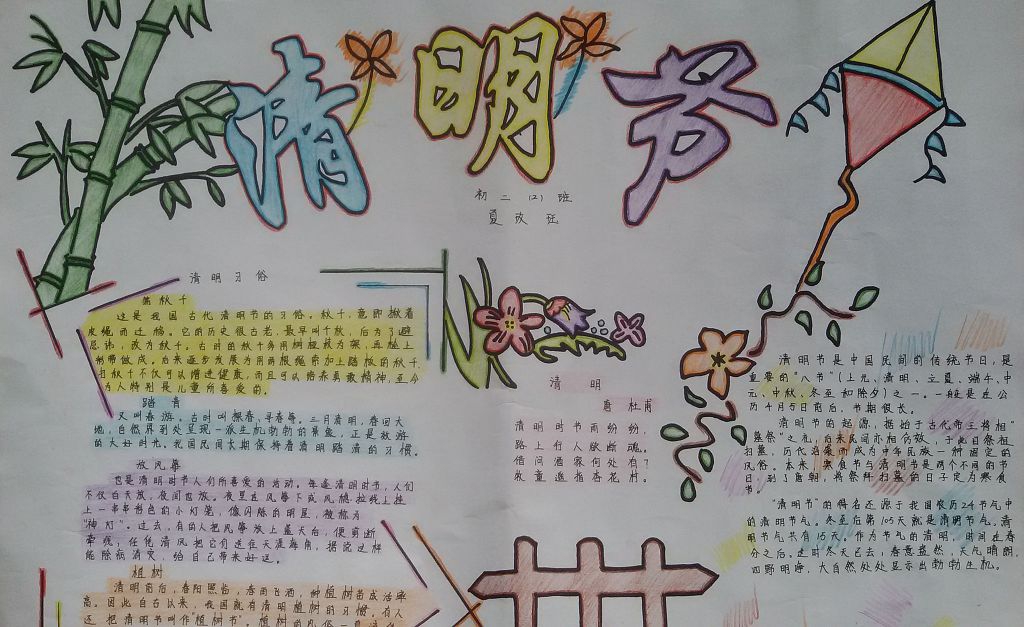 清明节
初二(2)班
夏
清明习俗
荡秋千
这是我国古代清明节的习俗。秋千,意即揪着
皮绳而迁移。它的历史很古老,最早叫千秋,后为了避
忌讳,改为秋千。古时的秋千多用树桠枝为架,再栓上
彩带做成。后来逐步发展为用两根绳索加上踏板的秋千.
打秋千不仅可以增进健康,而且可以培养勇敢精神,至今
为人特别是儿童所喜爱的.
踏青
又叫春游。古时叫探春,寻春等。三月清明,春回大
地,自然界到处呈现一派生机勃勃的景象,正是郊游
的大好时光。我国民间长期保持着清明踏清的习惯。
放风筝
也是清明时节人们所喜爱的活动,每逢清明时节,人们
不仅白天放,夜间也放。夜里在风筝下或风稳拉线上挂
上一串串彩色的小灯笼,像闪烁的明星,被称为
"神灯"。过去,有的人把风筝放上蓝天后,便剪断
牵线,任凭清风把它们送往天涯海角,据说这样
能除病消灾,给自己带来好运。
植树
清明前后,春阳照临,春雨飞洒,种植树苗成活率
高。因此自古以来,我国就有清明植树的习惯。有人
还把清明节叫作"植树节"。植树的风俗一直
清明
唐 杜甫
清明时节雨纷纷,
路上行人欲断魂。
借问酒家何处有?
牧童遥指杏花村。
清明节是中国民间的传统节日,是
重要的"八节"(上元、清明、立夏、端午、中
元、中秋、冬至和除夕)之一。一般是在公
历4月5日前后,节期很长。
清明节的起源,据始于古代帝王将相"
墓祭"之礼,后来民间亦相仿效,于此日祭祖
扫墓,历代沿袭而成为中华民族一种固定的
风俗。本来,寒食节与清明节是两个不同的节
日,到了唐朝,将祭拜扫墓的日子定为寒食
节。
"清明节"的得名还源于我国农历24节气中
的清明节气。冬至后第105天就是清明节气。清
明节气共有15天。作为节气的清明,时间在春
分之后。这时冬天已去,春意盎然,天气晴朗,
四野明净,大自然处处显示出勃勃生机。